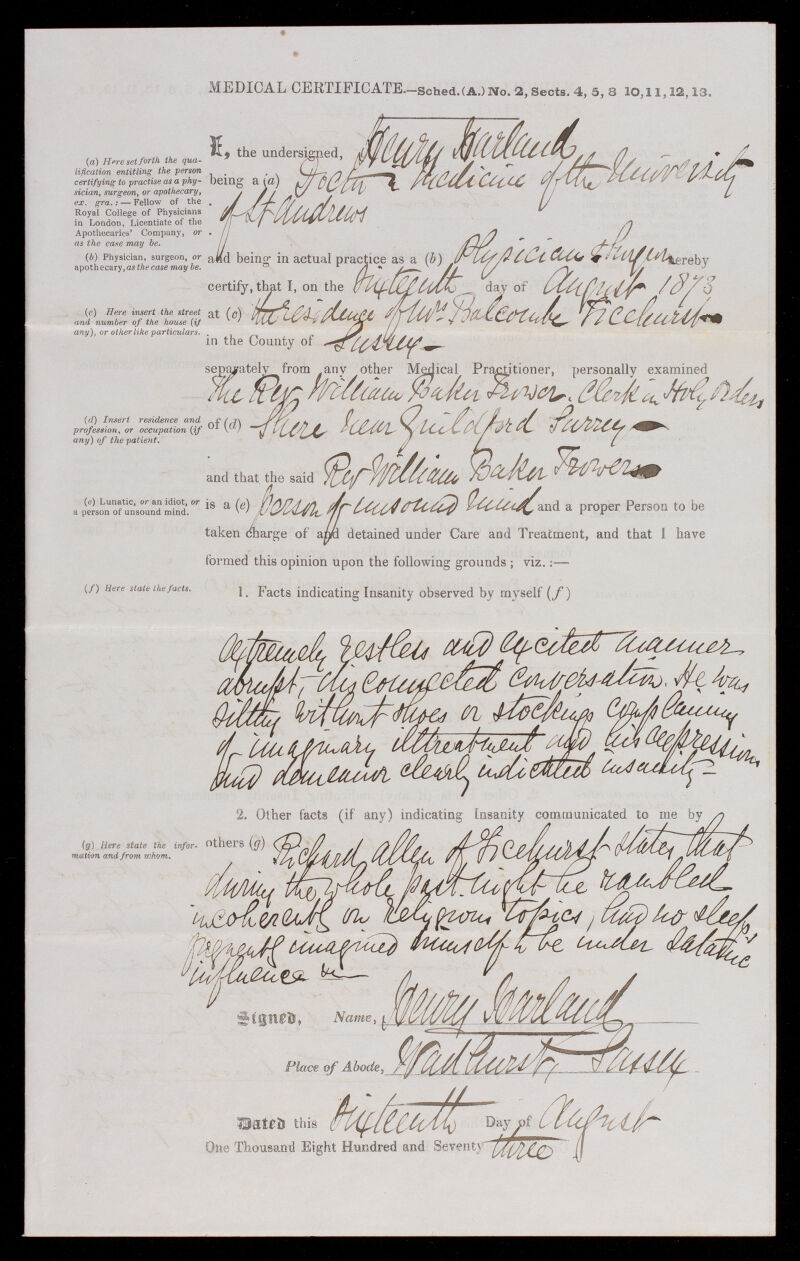 MEDICAL CERTIFICATE.—Sched. (A.) No. 2, Sects. 4, 5, 8 10, 11, 12, 13.
I, the undersigned, Henry Harland
(a) Here set forth the qua-
lification entitling the person
certifying to practise as a phy-
sician, surgeon, or apothecary,
ex. gra.:—Fellow of the
Royal College of Physicians
in London, Licentiate of the
Apothecaries' Company, or
as the case may be.
being a (a) Doctor of medicine of the University
of St Andrews
(b) Physician, surgeon, or
apothecary, as the case may be.
and being in actual practice as a (b) Physician & Surgeon hereby
certify, that I, on the Sixteenth day of August 1873
(c) Here insert the street
and number of the house (if
any), or other like particulars.
at (c) the residence of Mrs Balcombe Ticehurst
in the County of Sussex
separately from any other Medical Practitioner, personally examined
The Rev William Baker Trower. Clerk in Holy Orders
(d) Insert residence and
profession, or occupation (if
any) of the patient.
of (d) Shere near Guildford Surrey
and that the said Rev William Baker Trower
(e) Lunatic, or an idiot, or
a person of unsound mind.
is a (e) person of unsound mind and a proper Person to be
taken charge of and detained under Care and Treatment, and that I have
formed this opinion upon the following grounds; viz.:—
(f) Here state the facts.
1. Facts indicating Insanity observed by myself (f)
extremely restless and excited manner
abrupt, disconnected conversation. He was
sitting without shoes or stockings complaining
of imaginary illtreatment and his expression
and demeanor clearly indicated insanity—
2. Other facts (if any) indicating Insanity communicated to me by
(g) Here state the infor-
mation and from whom.
others (g) Richard Allen of Ticehurst states that
during the whole past night he rambled
incoherently on religious topics, had no sleep,
frequently imagined himself to be under Satanic
influence &c
Signed, Name, Henry Harland
Place of Abode, Wadhurst, Sussex
Dated this Sixteenth Day of August
One Thousand Eight Hundred and Seventy three